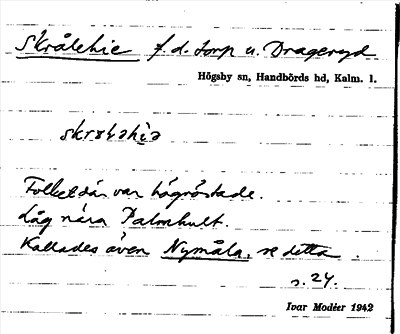 Skrålehie f. d. torp u. Drageryd
Högsby sn, Handbörds hd, Kalm. l.
Folket där var högröstade.
Låg nära Palmhult.
Kallades även Nymåla, se detta
s. 24.
Ivar Modéer 1942